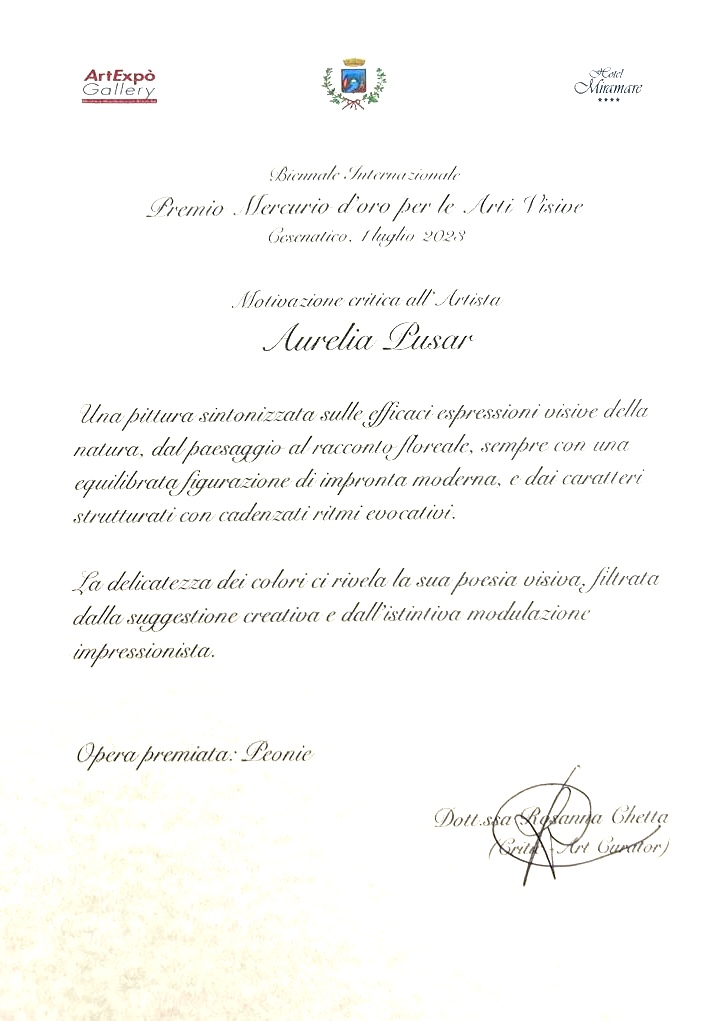 ArtExpò
Gallery
Hotel
Miramare
Biennale Internazionale
Premio Mercurio d'oro per le Arti Visive
Cesenatico, 1 luglio 2023
Motivazione critica all'Artista
Aurelia Pusar
Una pittura sintonizzata sulle efficaci espressioni visive della
natura, dal paesaggio al racconto floreale, sempre con una
equilibrata figurazione di impronta moderna, e dai caratteri
strutturati con cadenzati ritmi evocativi.
La delicatezza dei colori ci rivela la sua poesia visiva, filtrata
dalla suggestione creativa e dall'istintiva modulazione
impressionista.
Opera premiata: Peonie
Dott.ssa Rosanna Chetta
(Critic -Art Curator)